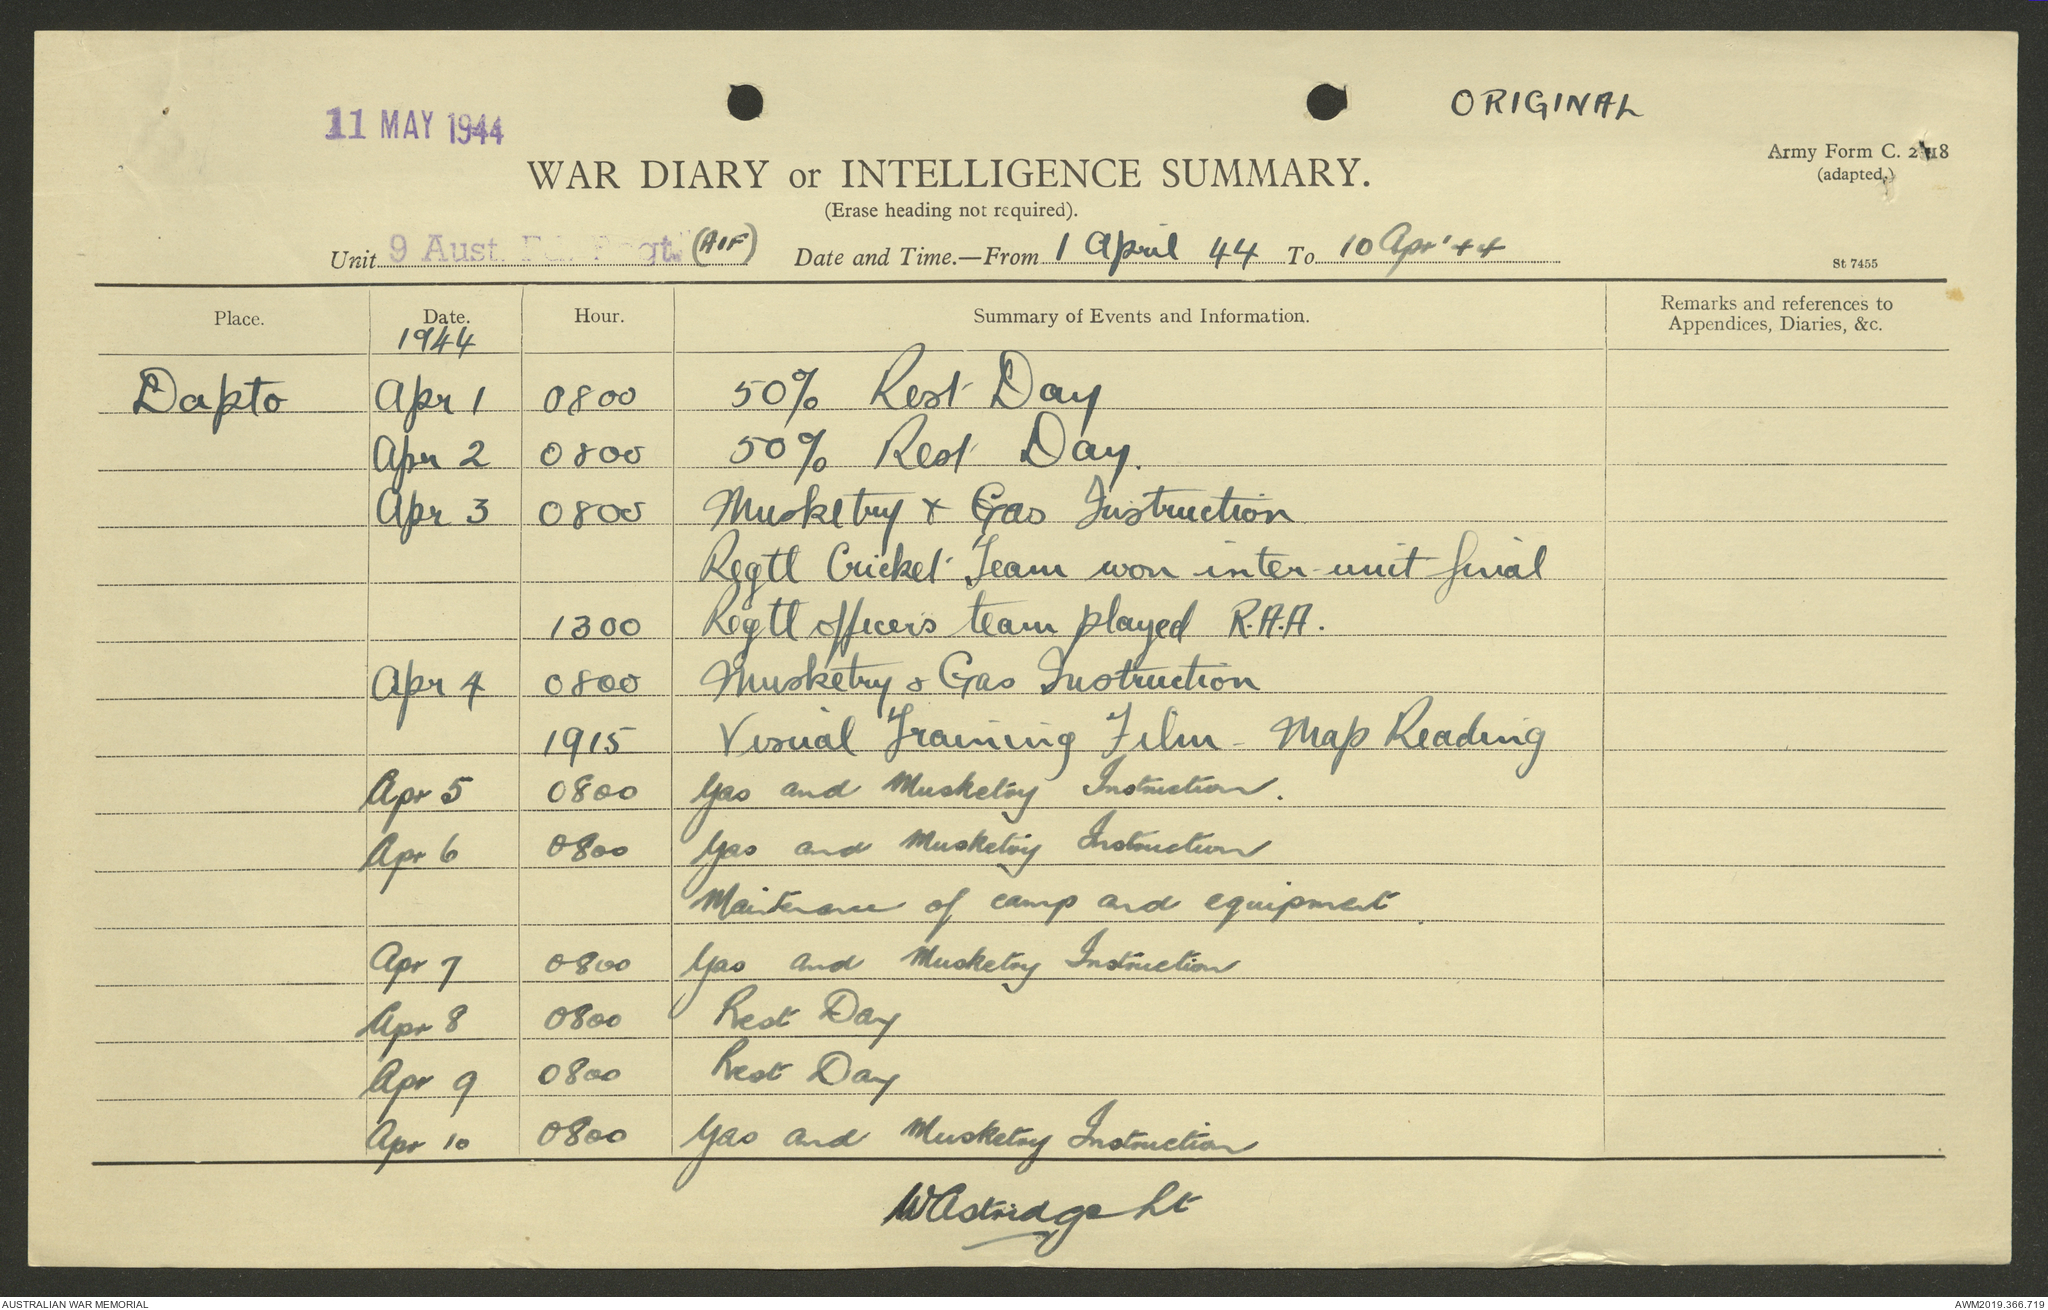 11 MAY 1944
ORIGINAL
Army Form C. 2118
(adapted.)
WAR DIARY or INTELLIGENCE SUMMARY.
(Erase heading not required).
Unit 9 Aust. Fd. Regt. (AIF) Date and Time.—From 1 April 44 To 10 Apr '44
St 7455
Place. Date. Hour. Summary of Events and Information. Remarks and references to
Appendices, Diaries, &c.
1944
Dapto Apr 1 0800 50% Rest Day
Apr 2 0800 50% Rest Day.
Apr 3 0800 Musketry & Gas Instruction
Regtl Cricket Team won inter-unit final
1300 Regtl officers team played R.A.A.
Apr 4 0800 Musketry & Gas Instruction
1915 Visual Training Film - Map Reading
Apr 5 0800 Gas and Musketry Instruction.
Apr 6 0800 Gas and Musketry Instruction
Maintenance of camp and equipment.
Apr 7 0800 Gas and Musketry Instruction
Apr 8 0800 Rest Day
Apr 9 0800 Rest Day
Apr 10 0800 Gas and Musketry Instruction
Lt
AUSTRALIAN WAR MEMORIAL
AWM2019.366.719